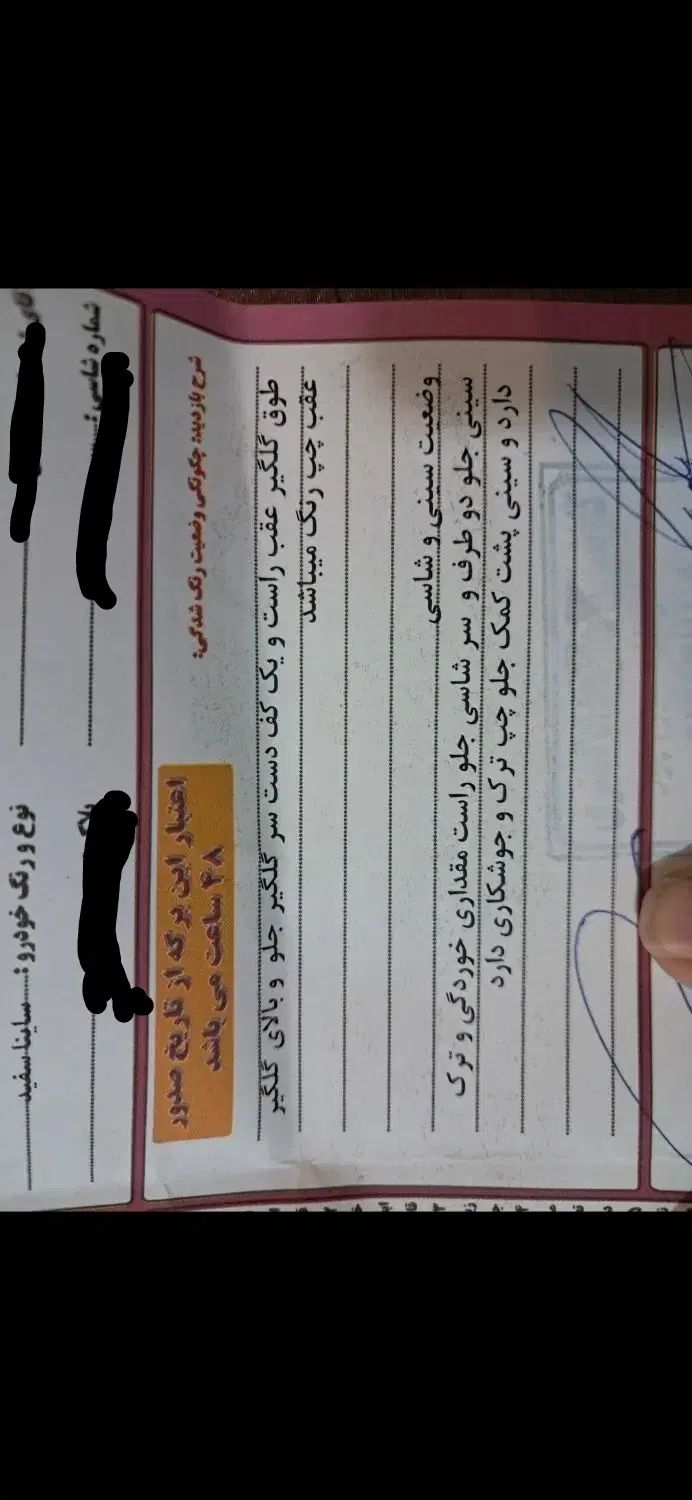 نوع و رنگ خودرو:....ساینا سفید
شماره شاسی:
شرح بازدید: چگونگی وضعیت رنگ شدگی:
اعتبار این برگه از تاریخ صدور
۴۸ ساعت می باشد
طوق گلگیر عقب راست و یک کف دست سر گلگیر جلو و بالای گلگیر
عقب چپ رنگ میباشد
وضعیت سینی و شاسی
سینی جلو دو طرف و سر شاسی جلو راست مقداری خوردگی و ترک
دارد و سینی پشت کمک جلو چپ ترک و جوشکاری دارد